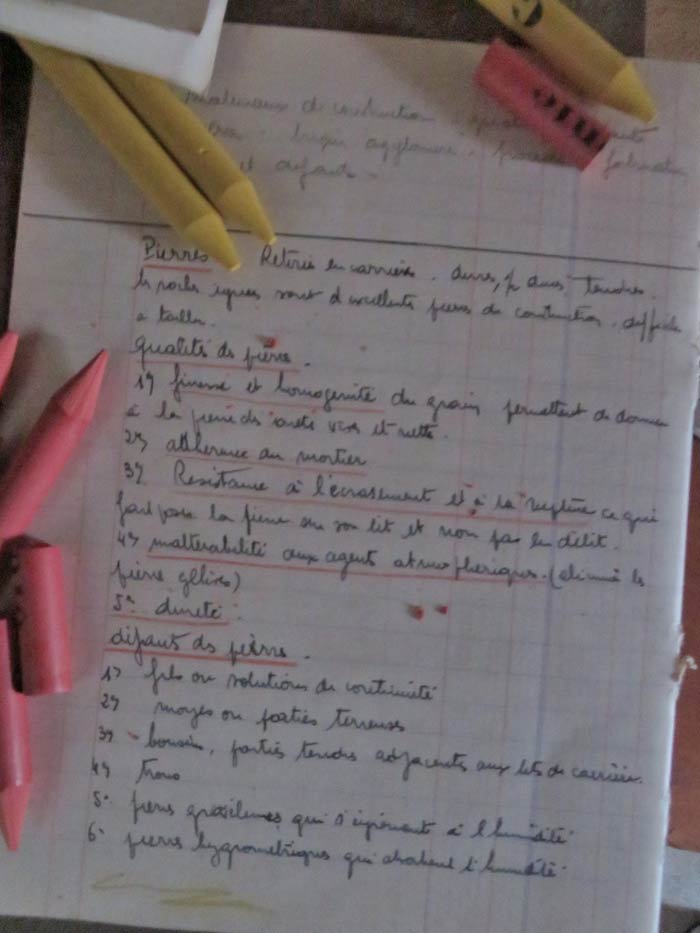 matériaux de construction
brique aggloméré
et défauts.
Pierres Retirés en carrière. dures, 1/2 dures tendres.
les roches ignées sont d'excellents pierres de construction. difficile
à tailler.
qualités des pierres.
1°) finesse et homogénité du grain permettent de donner
à la pierre des arêtes vives et nettes.
2°) adhérence au mortier
3°) Résistance à l'écrasement et à la rupture ce qui
fait poser la pierre sur son lit et non pas en délit.
4°) inaltérabilité aux agents atmosphériques. (élimine les
pierres gélives)
5° dureté.
défauts des pierres.
1°) fils ou solutions de continuité
2°) moyes ou parties terreuses
3°) bousins, parties tendres adjacents aux lits de carrière.
4°) trous
5° pierres qui à l'humidité
6° pierres hygrométriques qui absorbent l'humidité